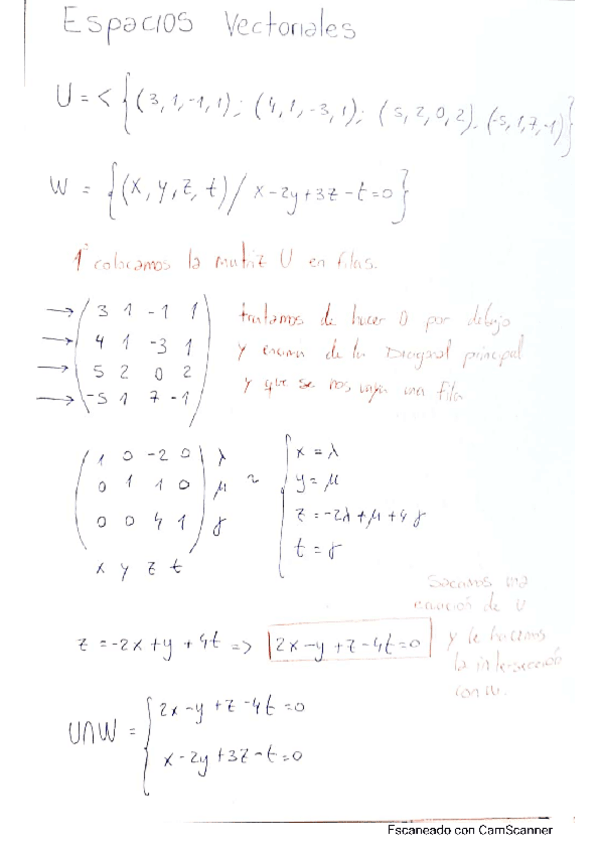 Espacios Vectoriales
U = < { (3, 1, -1, 1); (4, 1, -3, 1); (5, 2, 0, 2), (-5, 1, 7, -1) }
W = { (x, y, z, t) / x - 2y + 3z - t = 0 }
1º colocamos la matriz U en filas.
→ 3 1 -1 1
→ 4 1 -3 1
→ 5 2 0 2
→ -5 1 7 -1
tratamos de hacer 0 por debajo
y encima de la Diagonal principal
y que se nos vaya una fila
1 0 -2 0 λ
0 1 1 0 μ
0 0 4 1 γ
x y z t
~
x = λ
y = μ
z = -2λ + μ + 4γ
t = γ
z = -2x + y + 4t => 2x - y + z - 4t = 0
Sacamos una
ecuación de U
y le hacemos
la intersección
con W.
U∩W = { 2x - y + z - 4t = 0
x - 2y + 3z - t = 0
Escaneado con CamScanner